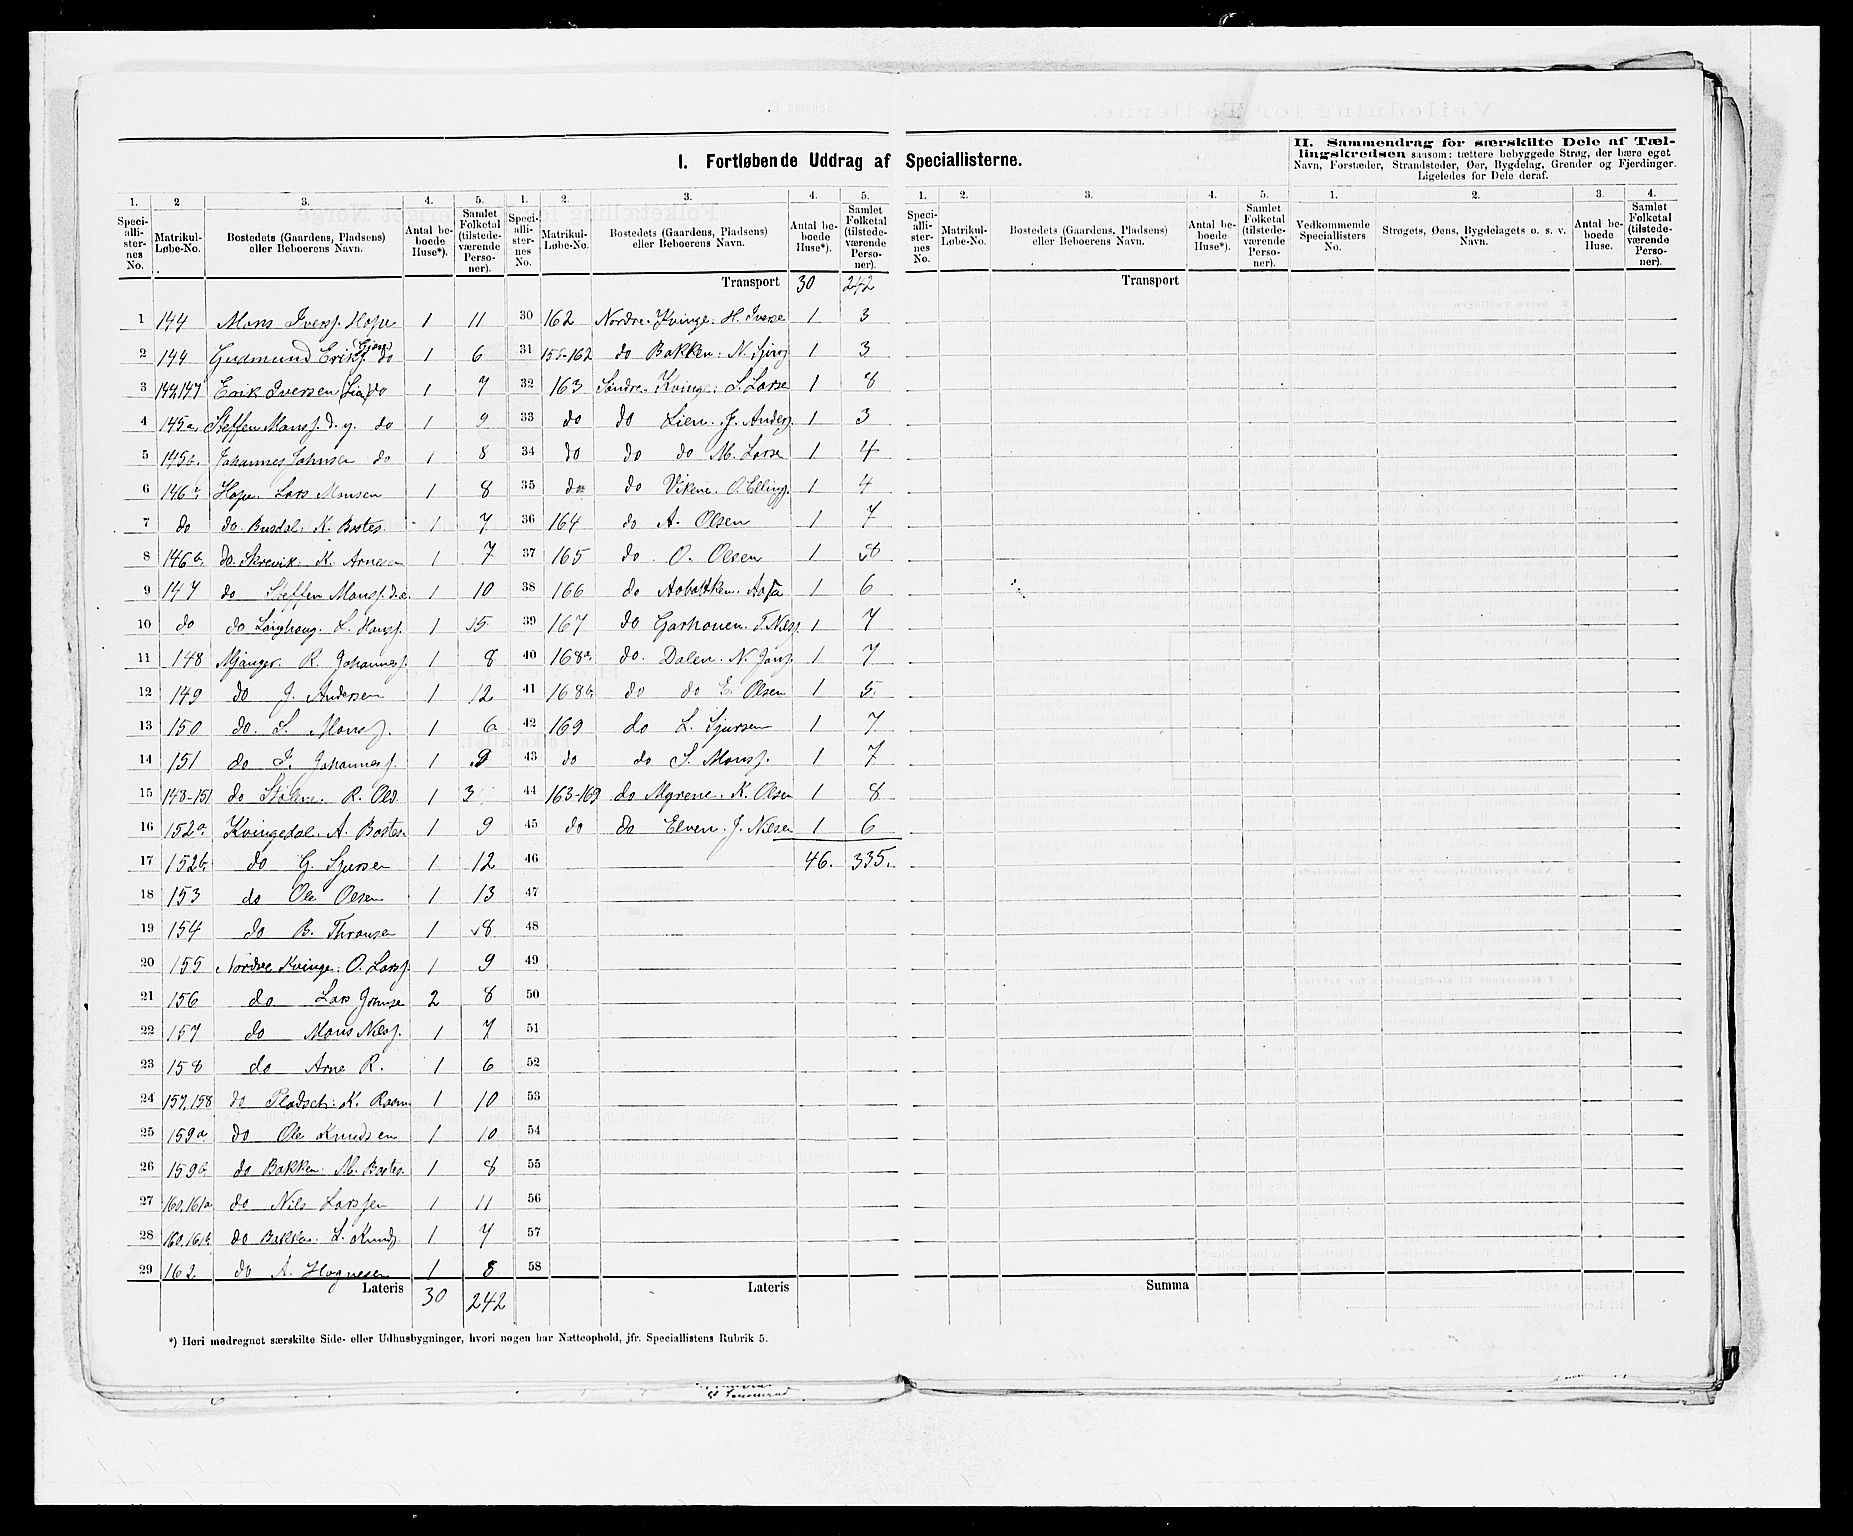 I. Fortløbende Uddrag af Speciallisterne.
II. Sammendrag for særskilte Dele af Tællingskredsen saasom: tættere bebyggede Strøg, der bære eget Navn, Forstæder, Strandsteder, Øer, Bygdelag, Grender og Fjerdinger. Ligeledes for Dele deraf.
1. 2 3. 4. 5. 1. 2. 3. 4. 5. 1. 2. 3. 4. 5. 1. 2. 3. 4.
Speciallisternes No. Matrikul-Løbe-No. Bostedets (Gaardens, Pladsens) eller Beboerens Navn. Antal beboede Huse*). Samlet Folketal (tilstedeværende Personer).
Speciallisternes No. Matrikul-Løbe-No. Bostedets (Gaardens, Pladsens) eller Beboerens Navn. Antal beboede Huse*). Samlet Folketal (tilstedeværende Personer).
Speciallisternes No. Matrikul-Løbe-No. Bostedets (Gaardens, Pladsens) eller Beboerens Navn. Antal beboede Huse*). Samlet Folketal (tilstedeværende Personer).
Vedkommende Speciallisters No. Strøgets, Øens, Bygdelagets o. s. v. Navn. Antal beboede Huse. Samlet Folketal (tilstedeværende Personer).
1 144 Mons Iversf. Hope 1 11
2 144 Gudmund Eriksf. do 1 6
3 144,147 Erik Iversen (Lia) do 1 7
4 145a. Steffen Monsf. d. y. do 1 9
5 145b. Johannes Johnsen do 1 8
6 146a. Hope. Lars Monsen 1 8
7 do do. Busdal: K. Bøtes. 1 7
8 146b. do. Skrevik: K. Arnesen 1 7
9 147 do Steffen Monsf. d.æ. 1 10
10 do do L. Hansf. 1 5
11 148 Mjanger. R. Johannesf. 1 8
12 149 do J. Andersen 1 12
13 150 do. S. Monsf. 1 6
14 151 do I. Johannesf. 1 9
15 148-151 do Stølen. R. Old. 1 3
16 152a. Kvingedal. A. Bøtes. 1 9
17 152b. do G. Sjursen 1 12
18 153 do Ole Olsen 1 13
19 154 do B. Thronsen 1 8
20 155 Nordre Kvinge: O. Larsf. 1 9
21 156 do Lars 2 8
22 157 do Mons Nilsf. 1 7
23 158 do Arne R. 1 6
24 157,158 do Pladsch: K. Rasm. 1 10
25 159a do Ole Knudsen 1 10
26 159b. do Bakken. M. Bøtes. 1 8
27 160,161a do Nils Larssen 1 11
28 160,161b. do Bakken. L. Knuds. 1 7
29 162 do A. Hognesen 1 8
Lateris 30 242
Transport 30 242
30 162 Nordre Kvinge: H. Iverse 1 3
31 155-162 do Bakken: N. 1 3
32 163 Søndre Kvinge: S. Larse 1 8
33 do do Lien. J. Anders. 1 3
34 do do do M. Larsen 1 4
35 do do Vikene. O. Elling. 1 4
36 164 do A. Olsen 1 7
37 165 do O. Olsen 1 8
38 166 do 1 6
39 167 do Garhouen. T. Nilsf. 1 7
40 168a. do. Dalen. N. Jonsf. 1 7
41 168b. do do E. Olsen 1 5.
42 169 do L. Sjursen 1 7
43 do do S. Monsf. 1 7
44 163-169 do Myrene. K. Olsen 1 8
45 do do Elven. J. Nilsen 1 6
46 46. 335.
47
48
49
50
51
52
53
54
55
56
57
58
Lateris
Transport
Summa
*) Heri medregnet særskilte Side- eller Udhusbygninger, hvori nogen har Natteophold, jfr. Speciallistens Rubrik 5.